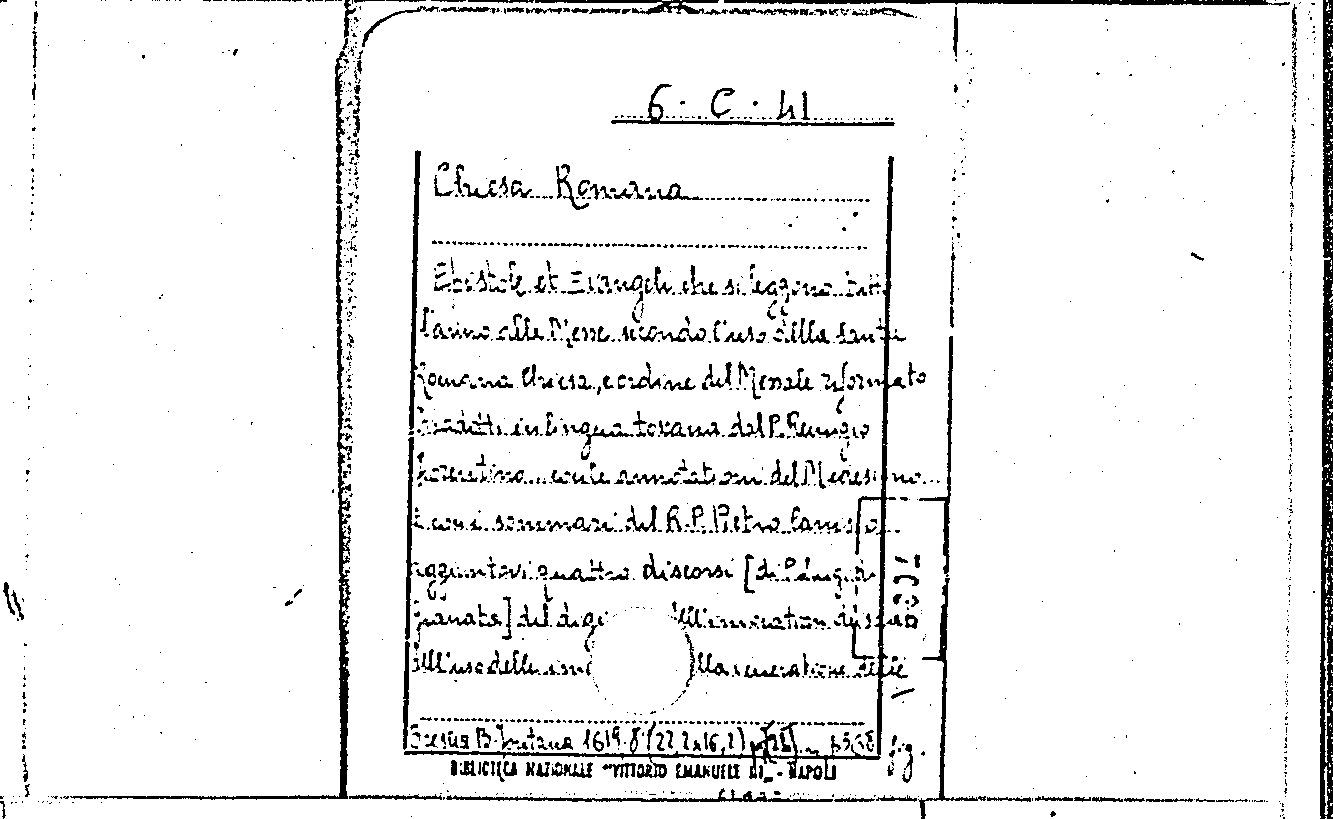 6 · C · 41
Chiesa Romana
Epistole et Evangeli che si leggono tutto
l'anno alle Messe secondo l'uso della santa
Romana Chiesa, e ordine del Messale riformato
Tradotti in lingua toscana dal P. Remigio
fiorentino con le annotationi del Medesimo
E con i sommari del R. P. Pietro Canisio
aggiuntovi quattro discorsi [di Luigi di
Granata] del digi dell'invocation dei santi
dell'uso delle im lla veneratione delle
Fontana 1619. 8° (22,2x16,2)
fig.
BIBLIOTECA NAZIONALE "VITTORIO EMANUELE III" - NAPOLI